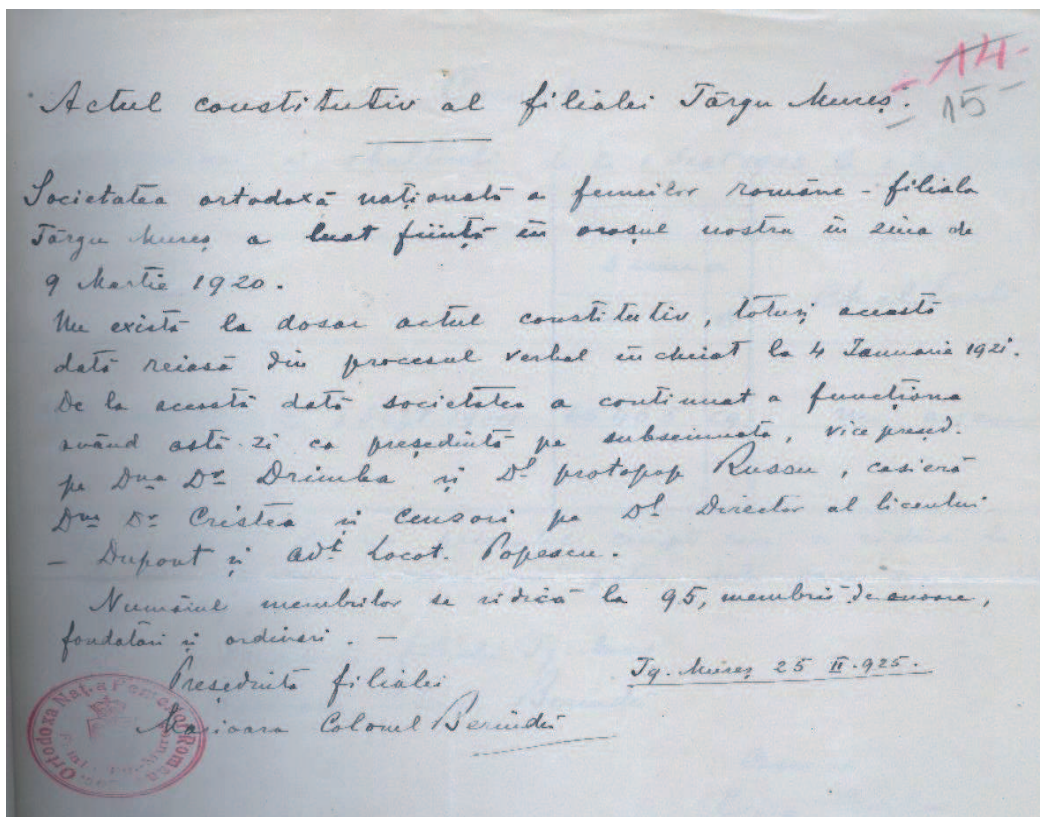 -14-
-15-
Actul constitutiv al filialei Târgu Mureș.
Societatea ortodoxă națională a femeilor române - filiala
Târgu Mureș a luat ființă în orașul nostru în ziua de
9 Martie 1920.
Nu există la dosar actul constitutiv, totuși această
dată reiasă din procesul verbal încheiat la 4 Ianuarie 1921.
De la această dată societatea a continuat a funcționa
având astă-zi ca președintă pe subsemnata, vice preșd.
pe Dna Dr Drimba și Dl protopop Russu, casieră
Dna Dr Cristea și Censori pe Dl Director al liceului
- Dupont și adt Locot. Popescu.
Numărul membrilor se ridică la 95, membrii de onoare,
fondatori și ordinari. -
Președintă filialei
Tg. Mureș 25 II. 925.
Marioara Colonel Berindei
Ortodoxa Naț. a Femeilor Rom